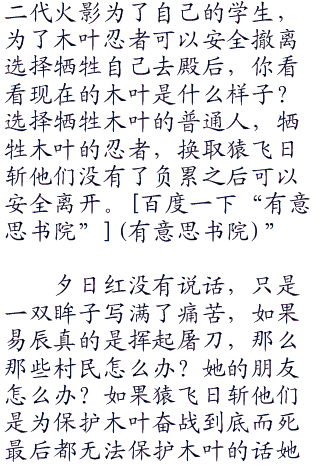 二代火影为了自己的学生，
为了木叶忍者可以安全撤离
选择牺牲自己去殿后，你看
看现在的木叶是什么样子？
选择牺牲木叶的普通人，牺
牲木叶的忍者，换取猿飞日
斩他们没有了负累之后可以
安全离开。[百度一下“有意
思书院”](有意思书院)”
夕日红没有说话，只是
一双眸子写满了痛苦，如果
易辰真的是挥起屠刀，那么
那些村民怎么办？她的朋友
怎么办？如果猿飞日斩他们
是为保护木叶奋战到底而死
最后都无法保护木叶的话她